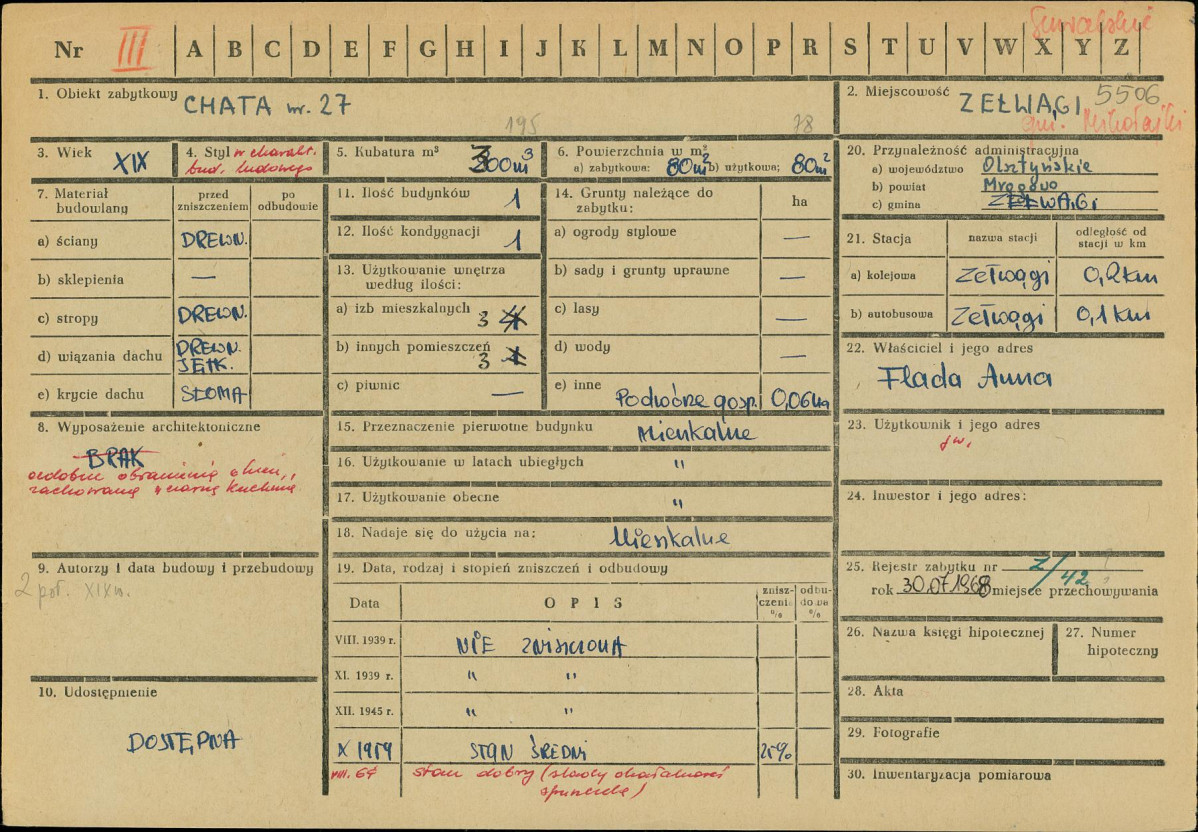 Nr III A B C D E F G H I J K L M N O P R S T U V W X Y Z
Suwalskie
1. Obiekt zabytkowy CHATA nr. 27
2. Miejscowość ZEŁWĄGI 5506
gm. Mikołajki
3. Wiek XIX
4. Styl w charakt. bud. ludowego
195
5. Kubatura m³ 200 m³
78
6. Powierzchnia w m²
a) zabytkowa: 80m² b) użytkowa; 80m²
7. Materiał budowlany
przed zniszczeniem
po odbudowie
a) ściany DREWN.
b) sklepienia —
c) stropy DREWN.
d) wiązania dachu DREWN. JĘTK.
e) krycie dachu SŁOMA
8. Wyposażenie architektoniczne
BRAK
ozdobne obramienia okien,
zachowana czarna kuchnia
9. Autorzy i data budowy i przebudowy
2 poł. XIX w.
10. Udostępnienie
DOSTĘPNA
11. Ilość budynków 1
12. Ilość kondygnacji 1
13. Użytkowanie wnętrza według ilości:
a) izb mieszkalnych 3 4
b) innych pomieszczeń 3 1
c) piwnic —
14. Grunty należące do zabytku: ha
a) ogrody stylowe —
b) sady i grunty uprawne —
c) lasy —
d) wody —
e) inne Podwórze gosp. 0,06ha
15. Przeznaczenie pierwotne budynku Mieszkalne
16. Użytkowanie w latach ubiegłych "
17. Użytkowanie obecne "
18. Nadaje się do użycia na: Mieszkalne
19. Data, rodzaj i stopień zniszczeń i odbudowy
Data OPIS zniszczenia % odbudowa %
VIII. 1939 r. NIE ZNISZCZONA
XI. 1939 r. " "
XII. 1945 r. " "
X 1959 STAN ŚREDNI 25%
VIII. 64 stan dobry (ślady działalności
spuszczela)
20. Przynależność administracyjna
a) województwo Olsztyńskie
b) powiat Mrągowo
c) gmina ZEŁWĄGI
21. Stacja
nazwa stacji
odległość od stacji w km
a) kolejowa Zełwągi 0,2km
b) autobusowa Zełwągi 0,1km
22. Właściciel i jego adres
Flada Anna
23. Użytkownik i jego adres
jw.
24. Inwestor i jego adres:
25. Rejestr zabytku nr Z/42 ?
rok 30.07.1968 miejsce przechowywania
26. Nazwa księgi hipotecznej
27. Numer hipoteczny
28. Akta
29. Fotografie
30. Inwentaryzacja pomiarowa